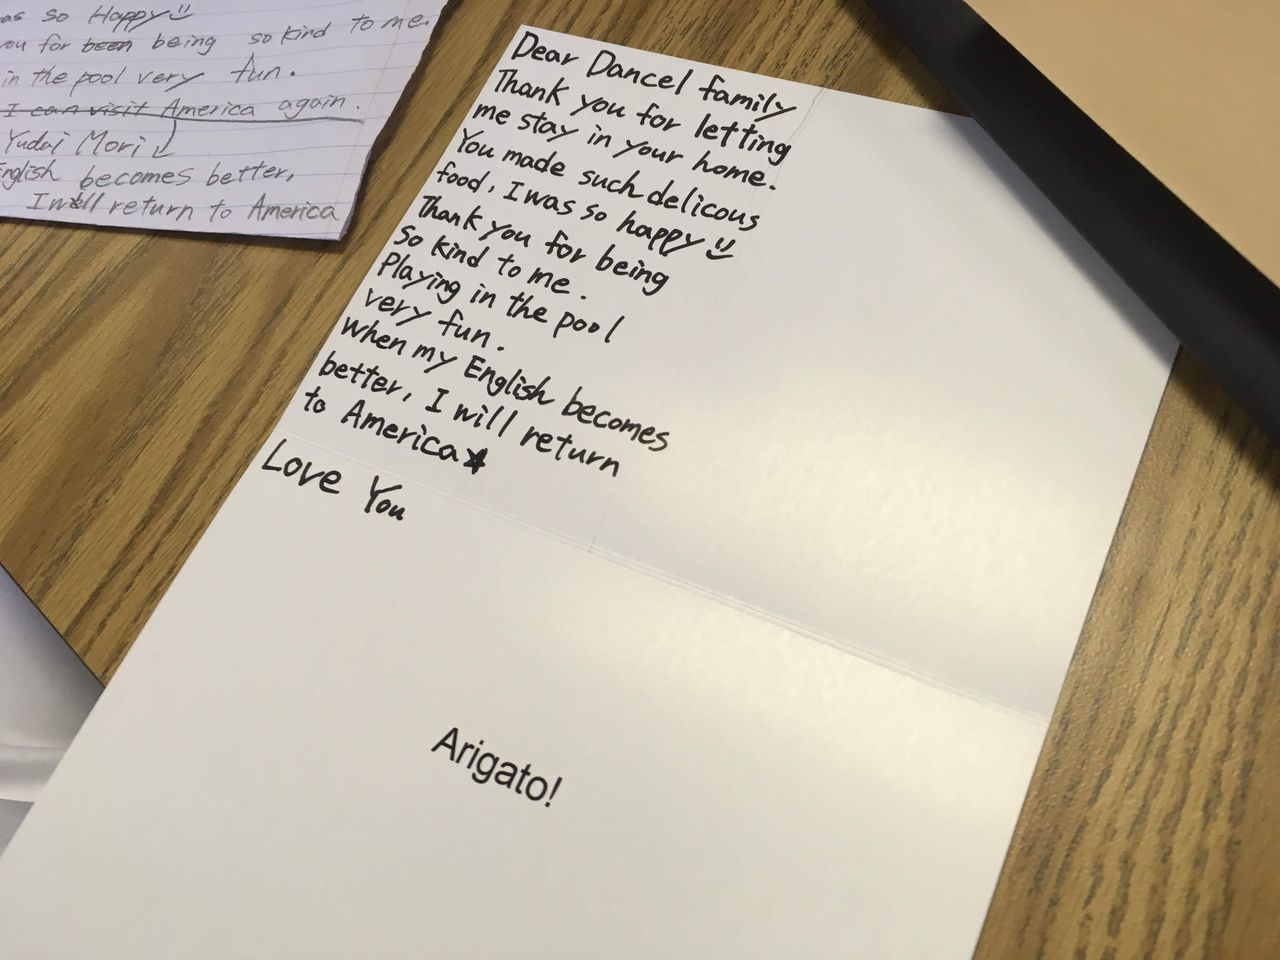 as so Happy
you for been being so kind to me.
in the pool very fun.
I can visit America again.
Yudai Mori
English becomes better,
I will return to America
Dear Dancel family
Thank you for letting
me stay in your home.
You made such delicous
food, I was so happy
Thank you for being
so kind to me.
Playing in the pool
very fun.
when my English becomes
better, I will return
to America★
Love You
Arigato!